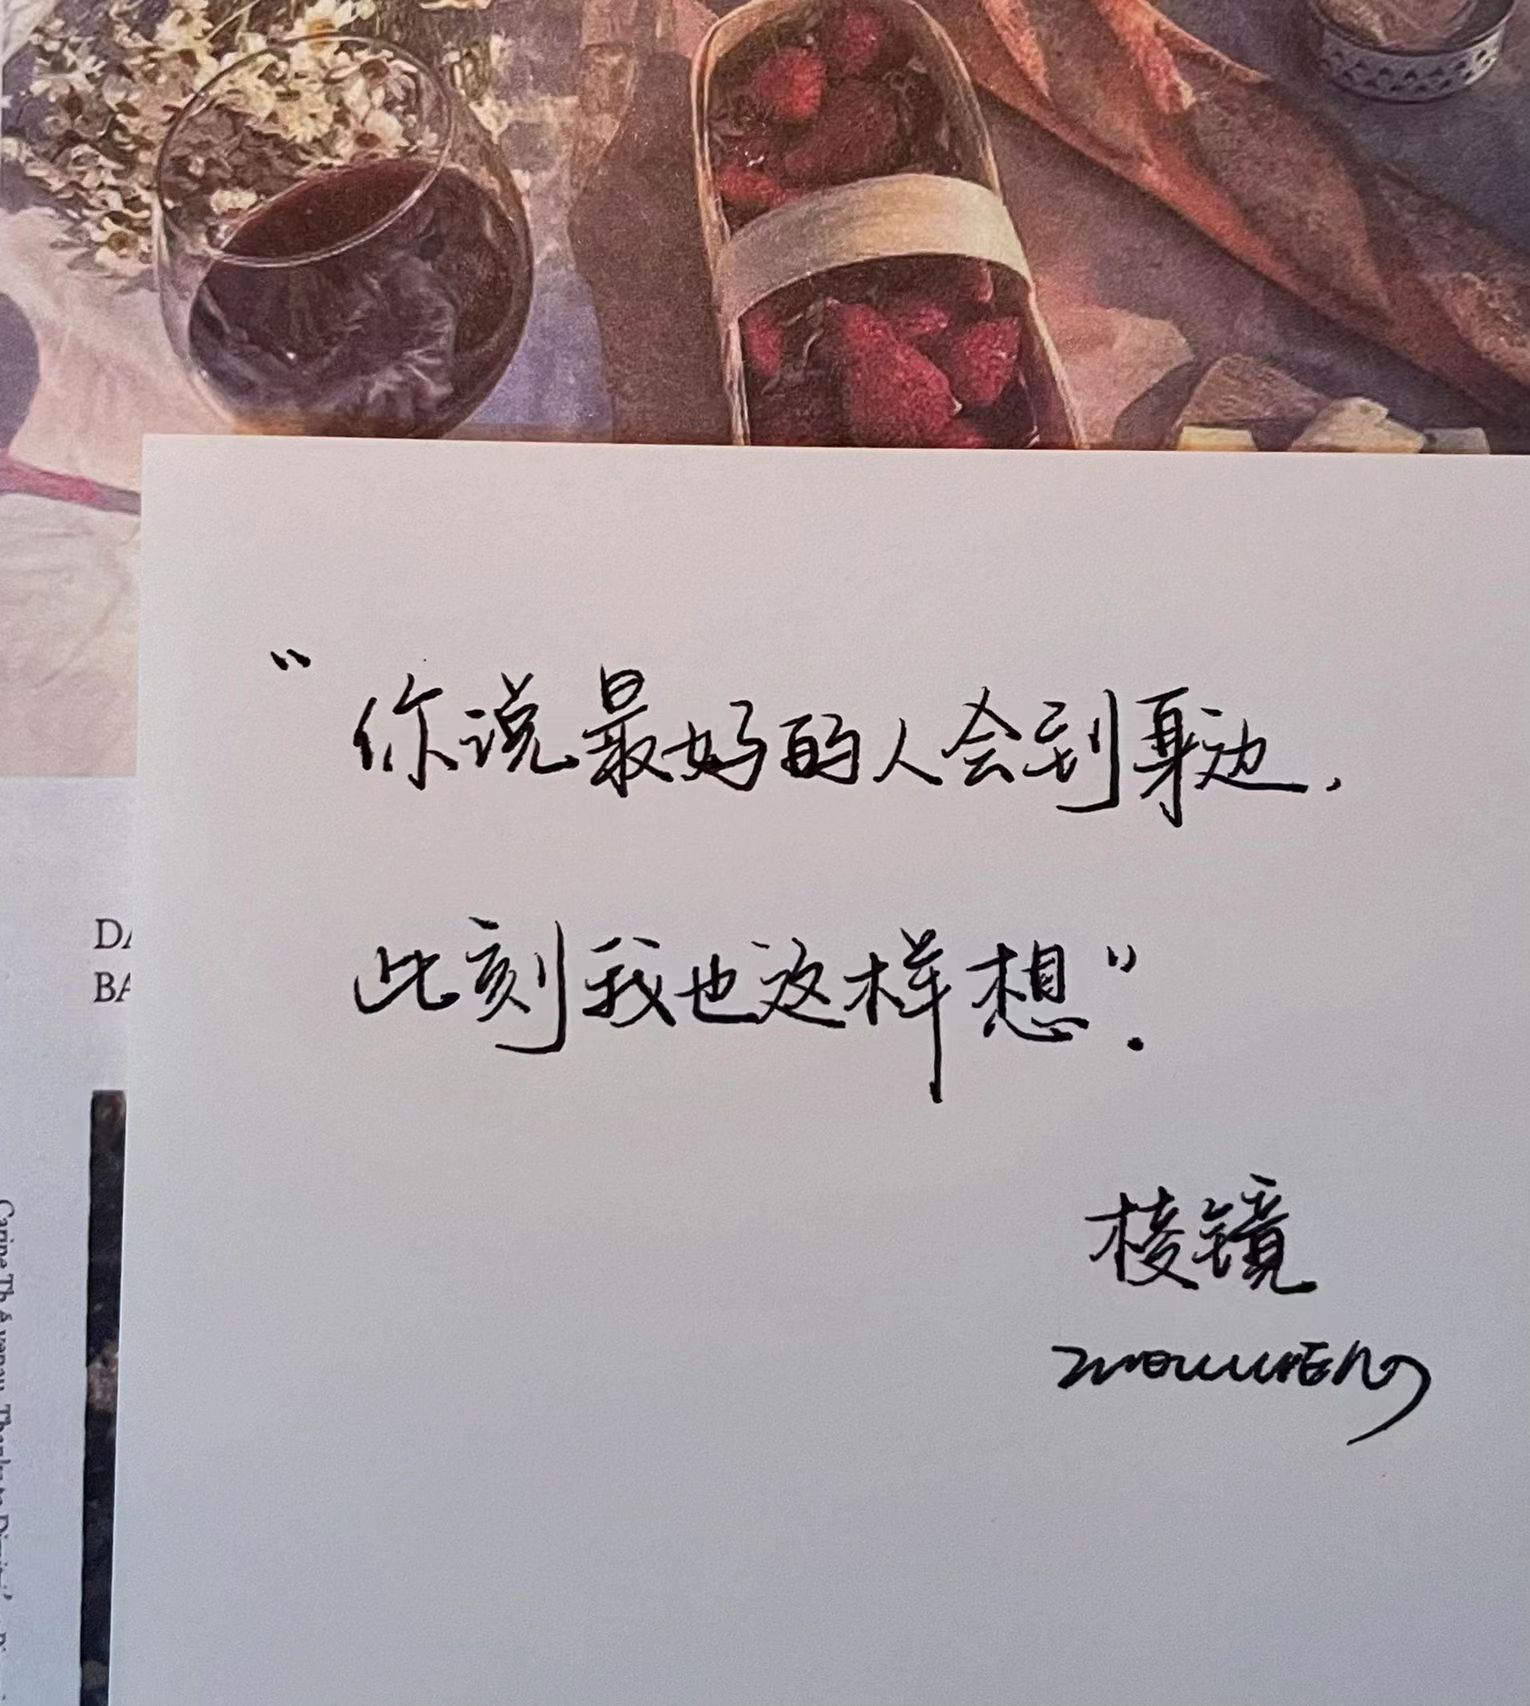 “你说最好的人会到身边，
此刻我也这样想”.
棱镜
DA
BA